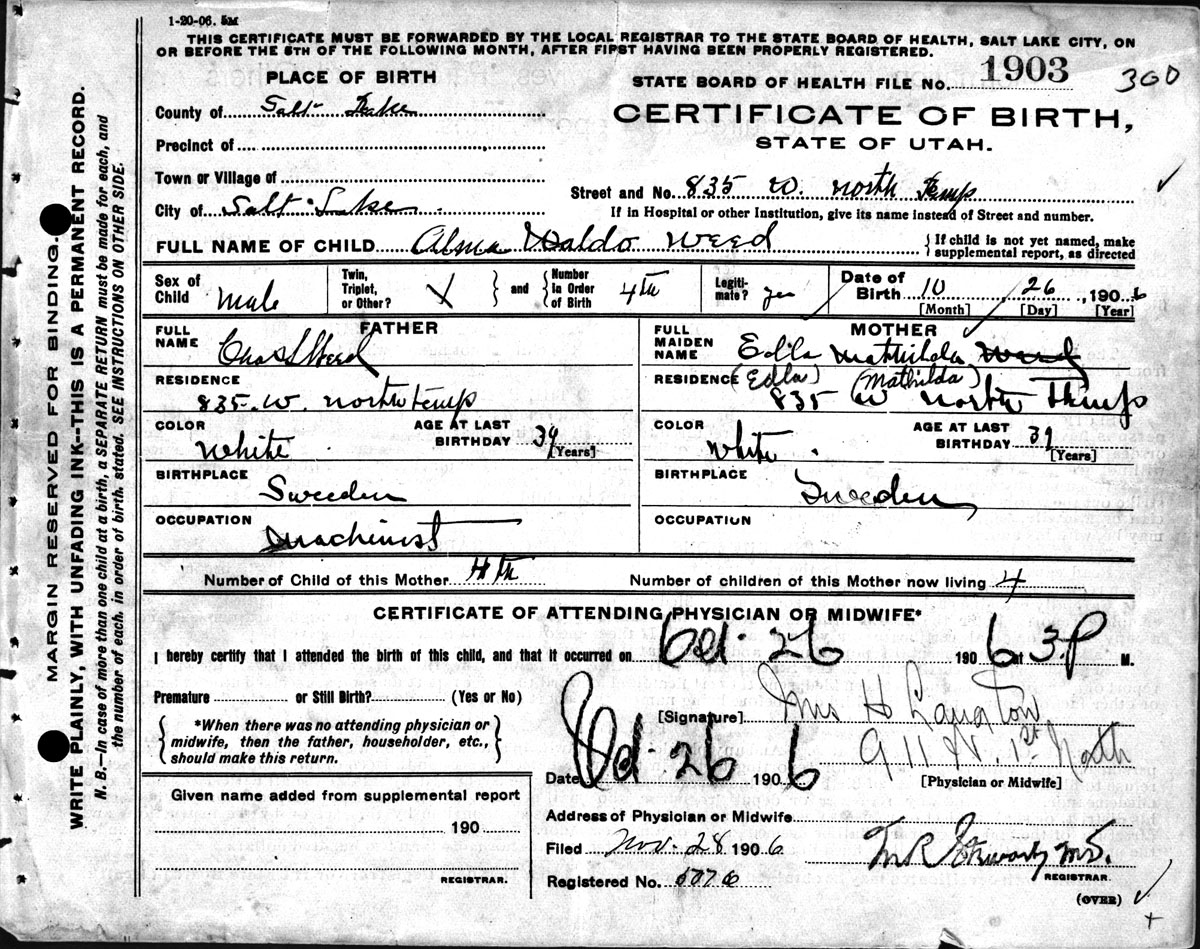 1-20-06. 5M
THIS CERTIFICATE MUST BE FORWARDED BY THE LOCAL REGISTRAR TO THE STATE BOARD OF HEALTH, SALT LAKE CITY, ON
OR BEFORE THE 5TH OF THE FOLLOWING MONTH, AFTER FIRST HAVING BEEN PROPERLY REGISTERED.
PLACE OF BIRTH
STATE BOARD OF HEALTH FILE No. 1903 300
County of Salt Lake
CERTIFICATE OF BIRTH,
Precinct of
STATE OF UTAH.
Town or Village of
Street and No. 835 W. North Temp
City of Salt Lake
If in Hospital or other Institution, give its name instead of Street and number.
FULL NAME OF CHILD Alma Waldo Weed
If child is not yet named, make
supplemental report, as directed
Sex of Child Male
Twin, Triplet, or Other? X
and Number in Order of Birth 4th
Legitimate? yes
Date of Birth 10 26, 1906
[Month] [Day] [Year]
FATHER
FULL NAME Chas L Weed
RESIDENCE
835. W. North temp
COLOR White
AGE AT LAST BIRTHDAY 39 [Years]
BIRTHPLACE
Sweeden
OCCUPATION
Machinist
MOTHER
FULL MAIDEN NAME Edla Mathilda Weed
RESIDENCE (Edla) (Mathilda)
835 W North Temp
COLOR White
AGE AT LAST BIRTHDAY 39 [Years]
BIRTHPLACE
Sweeden
OCCUPATION
Number of Child of this Mother 4th
Number of children of this Mother now living 4
CERTIFICATE OF ATTENDING PHYSICIAN OR MIDWIFE*
I hereby certify that I attended the birth of this child, and that it occurred on Oct. 26 1906 at 3 P M.
Premature or Still Birth? (Yes or No)
*When there was no attending physician or
midwife, then the father, householder, etc.,
should make this return.
[Signature] Mrs H Langton
911 W. 1st North
Date Oct. 26 1906
[Physician or Midwife]
Given name added from supplemental report
190
REGISTRAR.
Address of Physician or Midwife
Filed Nov. 28 1906
M R Stewart M.D.
REGISTRAR.
Registered No.
(OVER)
MARGIN RESERVED FOR BINDING.
WRITE PLAINLY, WITH UNFADING INK--THIS IS A PERMANENT RECORD.
N. B.—In case of more than one child at a birth, a SEPARATE RETURN must be made for each, and
the number of each, in order of birth, stated. SEE INSTRUCTIONS ON OTHER SIDE.